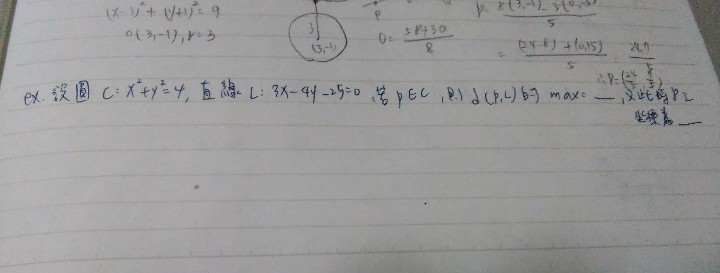 (x-3)²+(y+1)²=9
O(3,-1), r=3
3
(3,-1)
P
O= 5P+3O / 8
P= 8(3,-1)-3(0,-5) / 5
= (24,-8)+(0,15) / 5 = 24,7 / 5
∴P=(24/5,
ex. 設圓 C: x²+y²=4, 直線 L: 3x-4y-25=0, 若 P∈C, 則 d(P,L)的 max= __, 又此時P之
坐標為 __